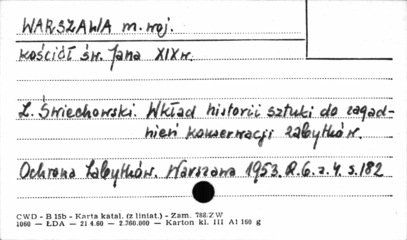 WARSZAWA m. woj.
kościół św. Jana XIX w.
L. Świechowski. Wkład historii sztuki do zagad-
nień konserwacji zabytków.
Ochrona Zabytków. Warszawa 1953. R.6. z.4. s.182
CWD - B 15b - Karta katal. (z liniat.) - Zam. 788/ZW
1060 — ŁDA — 21 4.60 — 2.360.000 — Karton kl. III A1 160 g